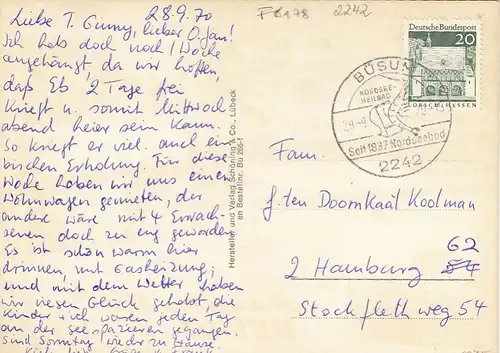 28.9.70
Liebe T. Gunny, lieber O. Jan!
Ich hab doch noch 1 Woche
angehängt, da wir hoffen,
daß Eb. 2 Tage frei
kriegt u. somit Mittwoch
abend hier sein kann.
So kriegt er viel. auch ein
bischen Erholung. Für diese
Woche haben wir uns einen
Wohnwagen gemietet, der
andere wäre mit 4 Erwach-
senen doch zu eng geworden
Es ist schön warm hier
drinnen, mit Gasheizung,
und mit dem Wetter haben
wir riesen Glück gehabt die
Kinder + ich waren jeden Tag
an der See spazieren gegangen.
sind Sonntag wieder zu Hause
Hersteller und Verlag Schöning & Co., Lübeck
en Bestellnr. Bü 286-1
2242
BÜSUM
NORDSEE-
HEILBAD
Seit 1837 Nordseebad
2242
Deutsche Bundespost
20
LORSCH/HESSEN
Fam.
J. ten Doornkaat Koolman
62
2 Hamburg 54
Stockflethweg 54